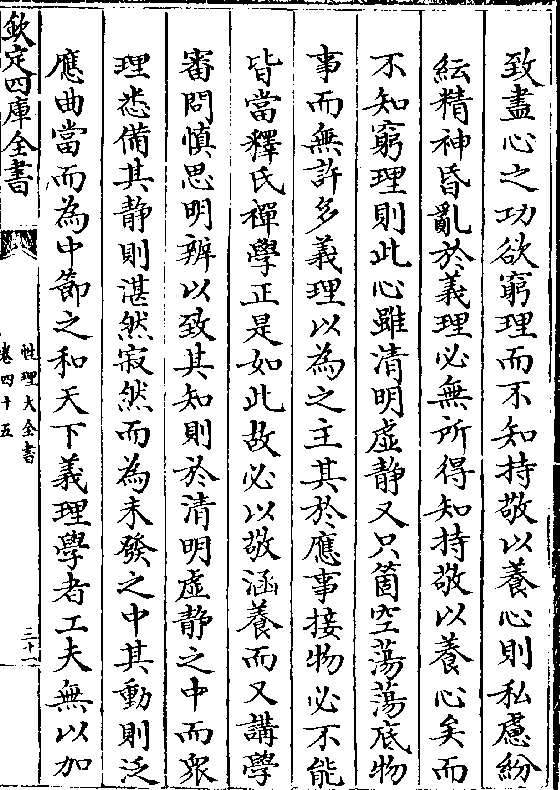 致盡心之功欲窮理而不知持敬以養心則私慮紛
紜精神昏亂於義理必無所得知持敬以養心矣而
不知窮理則此心雖清明虛静又只箇空蕩蕩底物
事而無許多義理以為之主其於應事接物必不能
皆當釋氏禪學正是如此故必以敬涵養而又講學
審問慎思明辨以致其知則於清明虛静之中而衆
理悉備其静則湛然寂然而為未發之中其動則泛
應曲當而為中節之和天下義理學者工夫無以加
欽定四庫全書
性理大全書
卷四十五
三十一